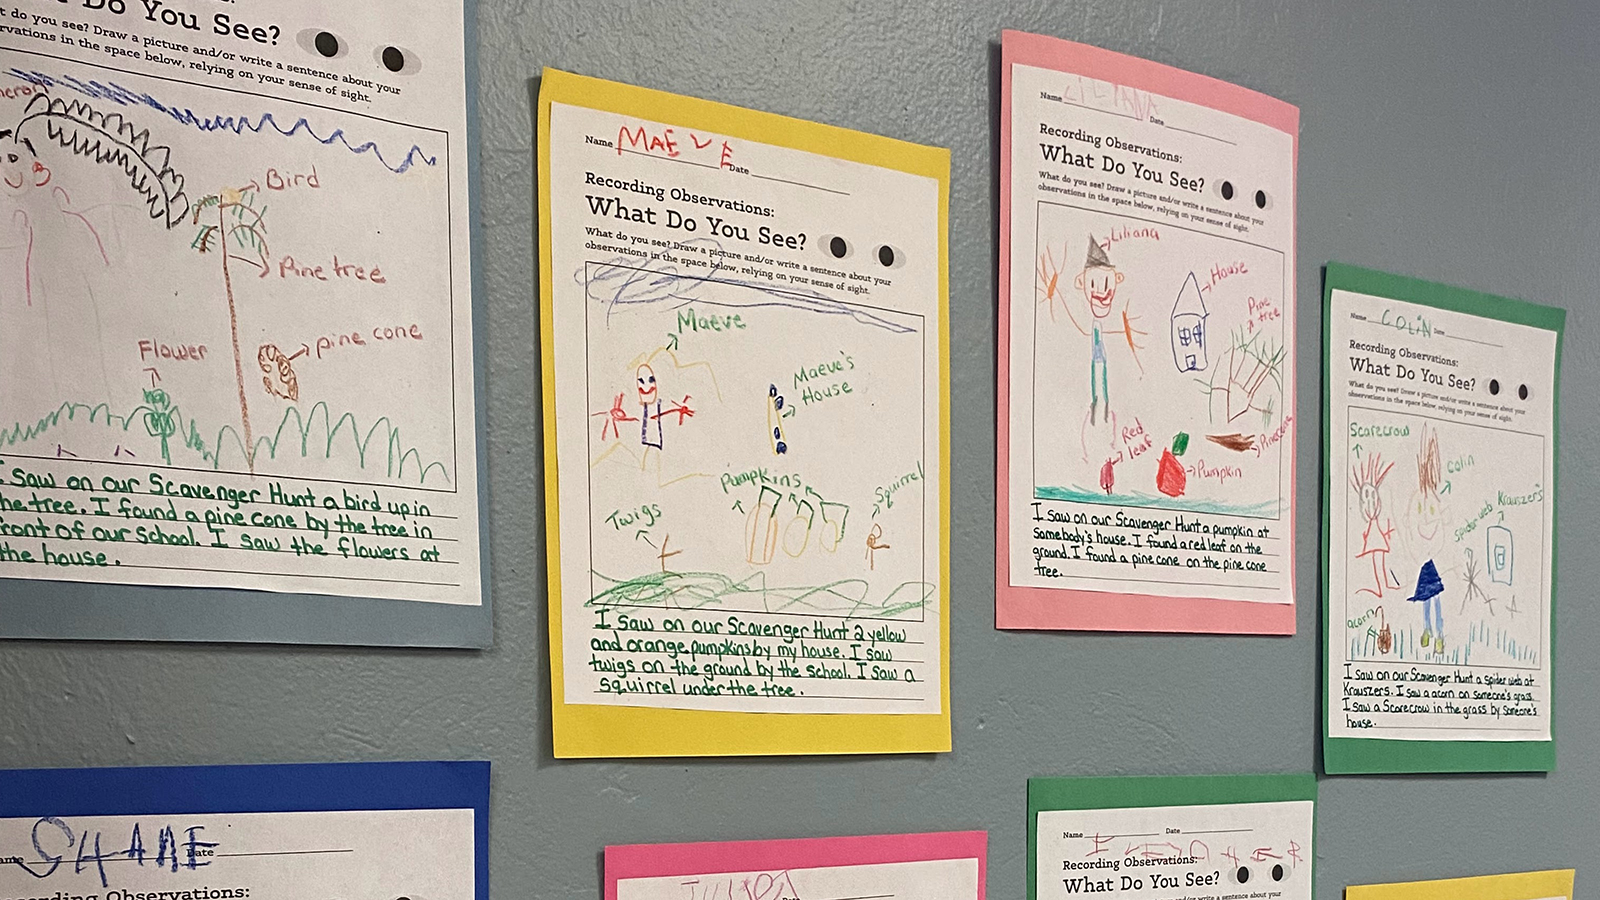 Do You See?
t do you see? Draw a picture and/or write a sentence about your
observations in the space below, relying on your
sense of sight.
Bird
Pine tree
pine cone
Flower
I saw on our Scavenger Hunt a bird up in
the tree. I found a pine cone by the tree in
front of our school. I saw the flowers at
the house.
Name MAEVE Date
Recording Observations:
What Do You See?
What do you see? Draw a picture and/or write a sentence about your
observations in the space below, relying on your
sense of sight.
Maeve
Maeve's
House
Pumpkins
Squirrel
Twigs
I saw on our Scavenger Hunt 2 yellow
and orange pumpkins by my house. I saw
twigs on the ground by the school. I saw a
squirrel under the tree.
Name LILIANA Date
Recording Observations:
What Do You See?
What do you see? Draw a picture and/or write a sentence about your
observations in the space below, relying on your
sense of sight.
Liliana
House
Pine
tree
Red
leaf
Pumpkin
Pinecone
I saw on our Scavenger Hunt a pumpkin at
somebody's house. I found a red leaf on the
ground. I found a pine cone on the pine cone
tree.
Name COLIN Date
Recording Observations:
What Do You See?
What do you see? Draw a picture and/or write a sentence about your
observations in the space below, relying on your
sense of sight.
Scarecrow
Colin
spider web
Krauszer's
acorn
I saw on our Scavenger Hunt a spider web at
Krauszers. I saw a acorn on someone's grass.
I saw a Scarecrow in the grass by someone's
house.
Name SHANE Date
Recording Observations:
Name Date
Recording Observations:
What Do You See?